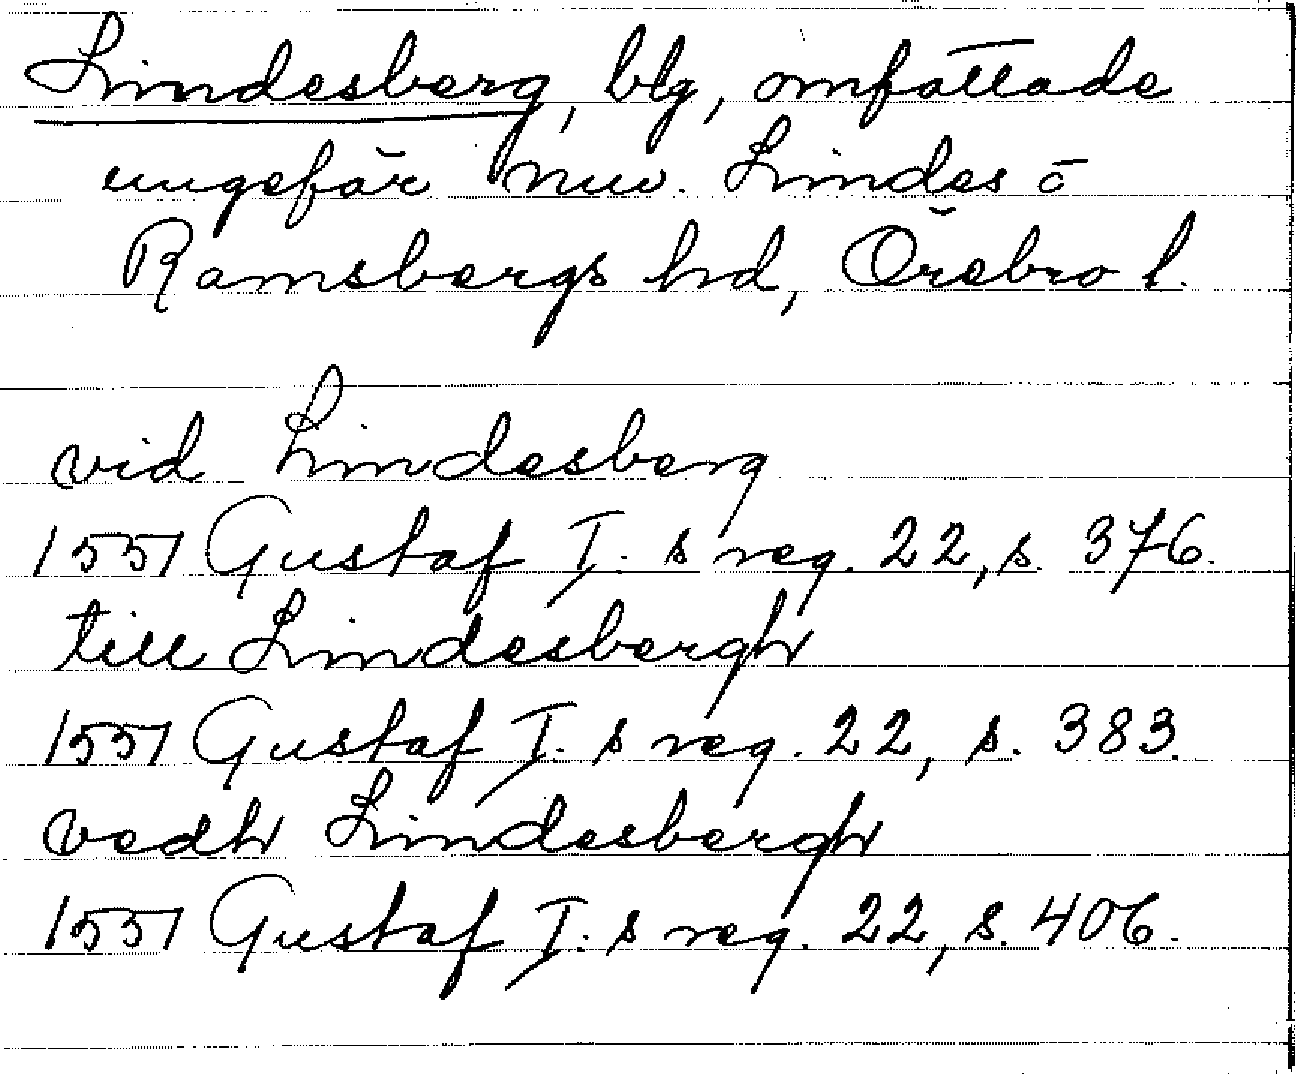 Lindesberg, blg, omfattade
ungefär nuv. Lindes o
Ramsbergs hd, Örebro l.
vid Lindesberg
1551 Gustaf I. s reg. 22, s. 376.
till Lindesbergh
1551 Gustaf I. s reg. 22, s. 383.
vedh Lindesbergh
1551 Gustaf I. s reg. 22, s. 406.